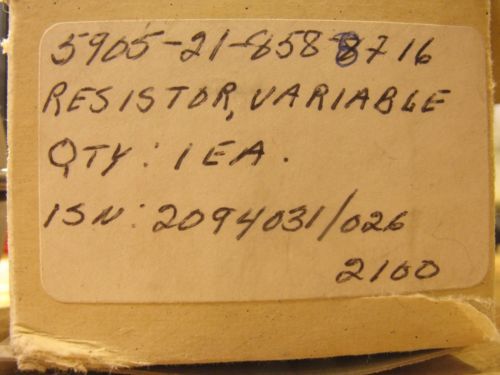 5905-21-858 8716
RESISTOR, VARIABLE
QTY: 1 EA.
ISN: 2094031/026
2100